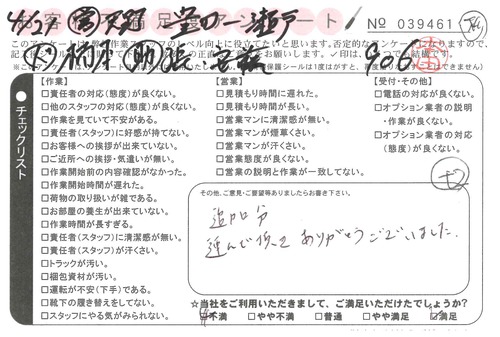 お客様満足度アンケート
No 039461
4/27
906
チェックリスト
【作業】
□責任者の対応(態度)が良くない。
□他のスタッフの対応(態度)が良くない。
□作業を見ていて不安がある。
□責任者(スタッフ)に好感が持てない。
□お客様への挨拶が出来ていない。
□ご近所への挨拶・気遣いが無い。
□作業開始前の内容確認がなかった。
□作業開始時間が遅れた。
□荷物の取り扱いが雑である。
□お部屋の養生が出来ていない。
□作業時間が長すぎる。
□責任者(スタッフ)に清潔感が無い。
□責任者(スタッフ)が汗くさい。
□トラックが汚い。
□梱包資材が汚い。
□運転が不安(下手)である。
□靴下の履き替えをしてない。
□スタッフにやる気がみられない。
【営業】
□見積もり時間に遅れた。
□見積もり時間が長い。
□営業マンに清潔感が無い。
□営業マンが煙草くさい。
□営業マンが汗くさい。
□営業態度が良くない。
□営業の説明と作業が一致してない。
【受付・その他】
□電話の対応が良くない。
□オプション業者の説明
・作業が良くない。
□オプション業者の対応
(態度)が良くない。
その他、ご意見・ご要望等ありましたらお書き下さい。
追加分
運んで頂き ありがとうございました.
☆当社をご利用いただきまして、ご満足いただけたでしょうか?
□不満 □やや不満 □普通 □やや満足 □満足